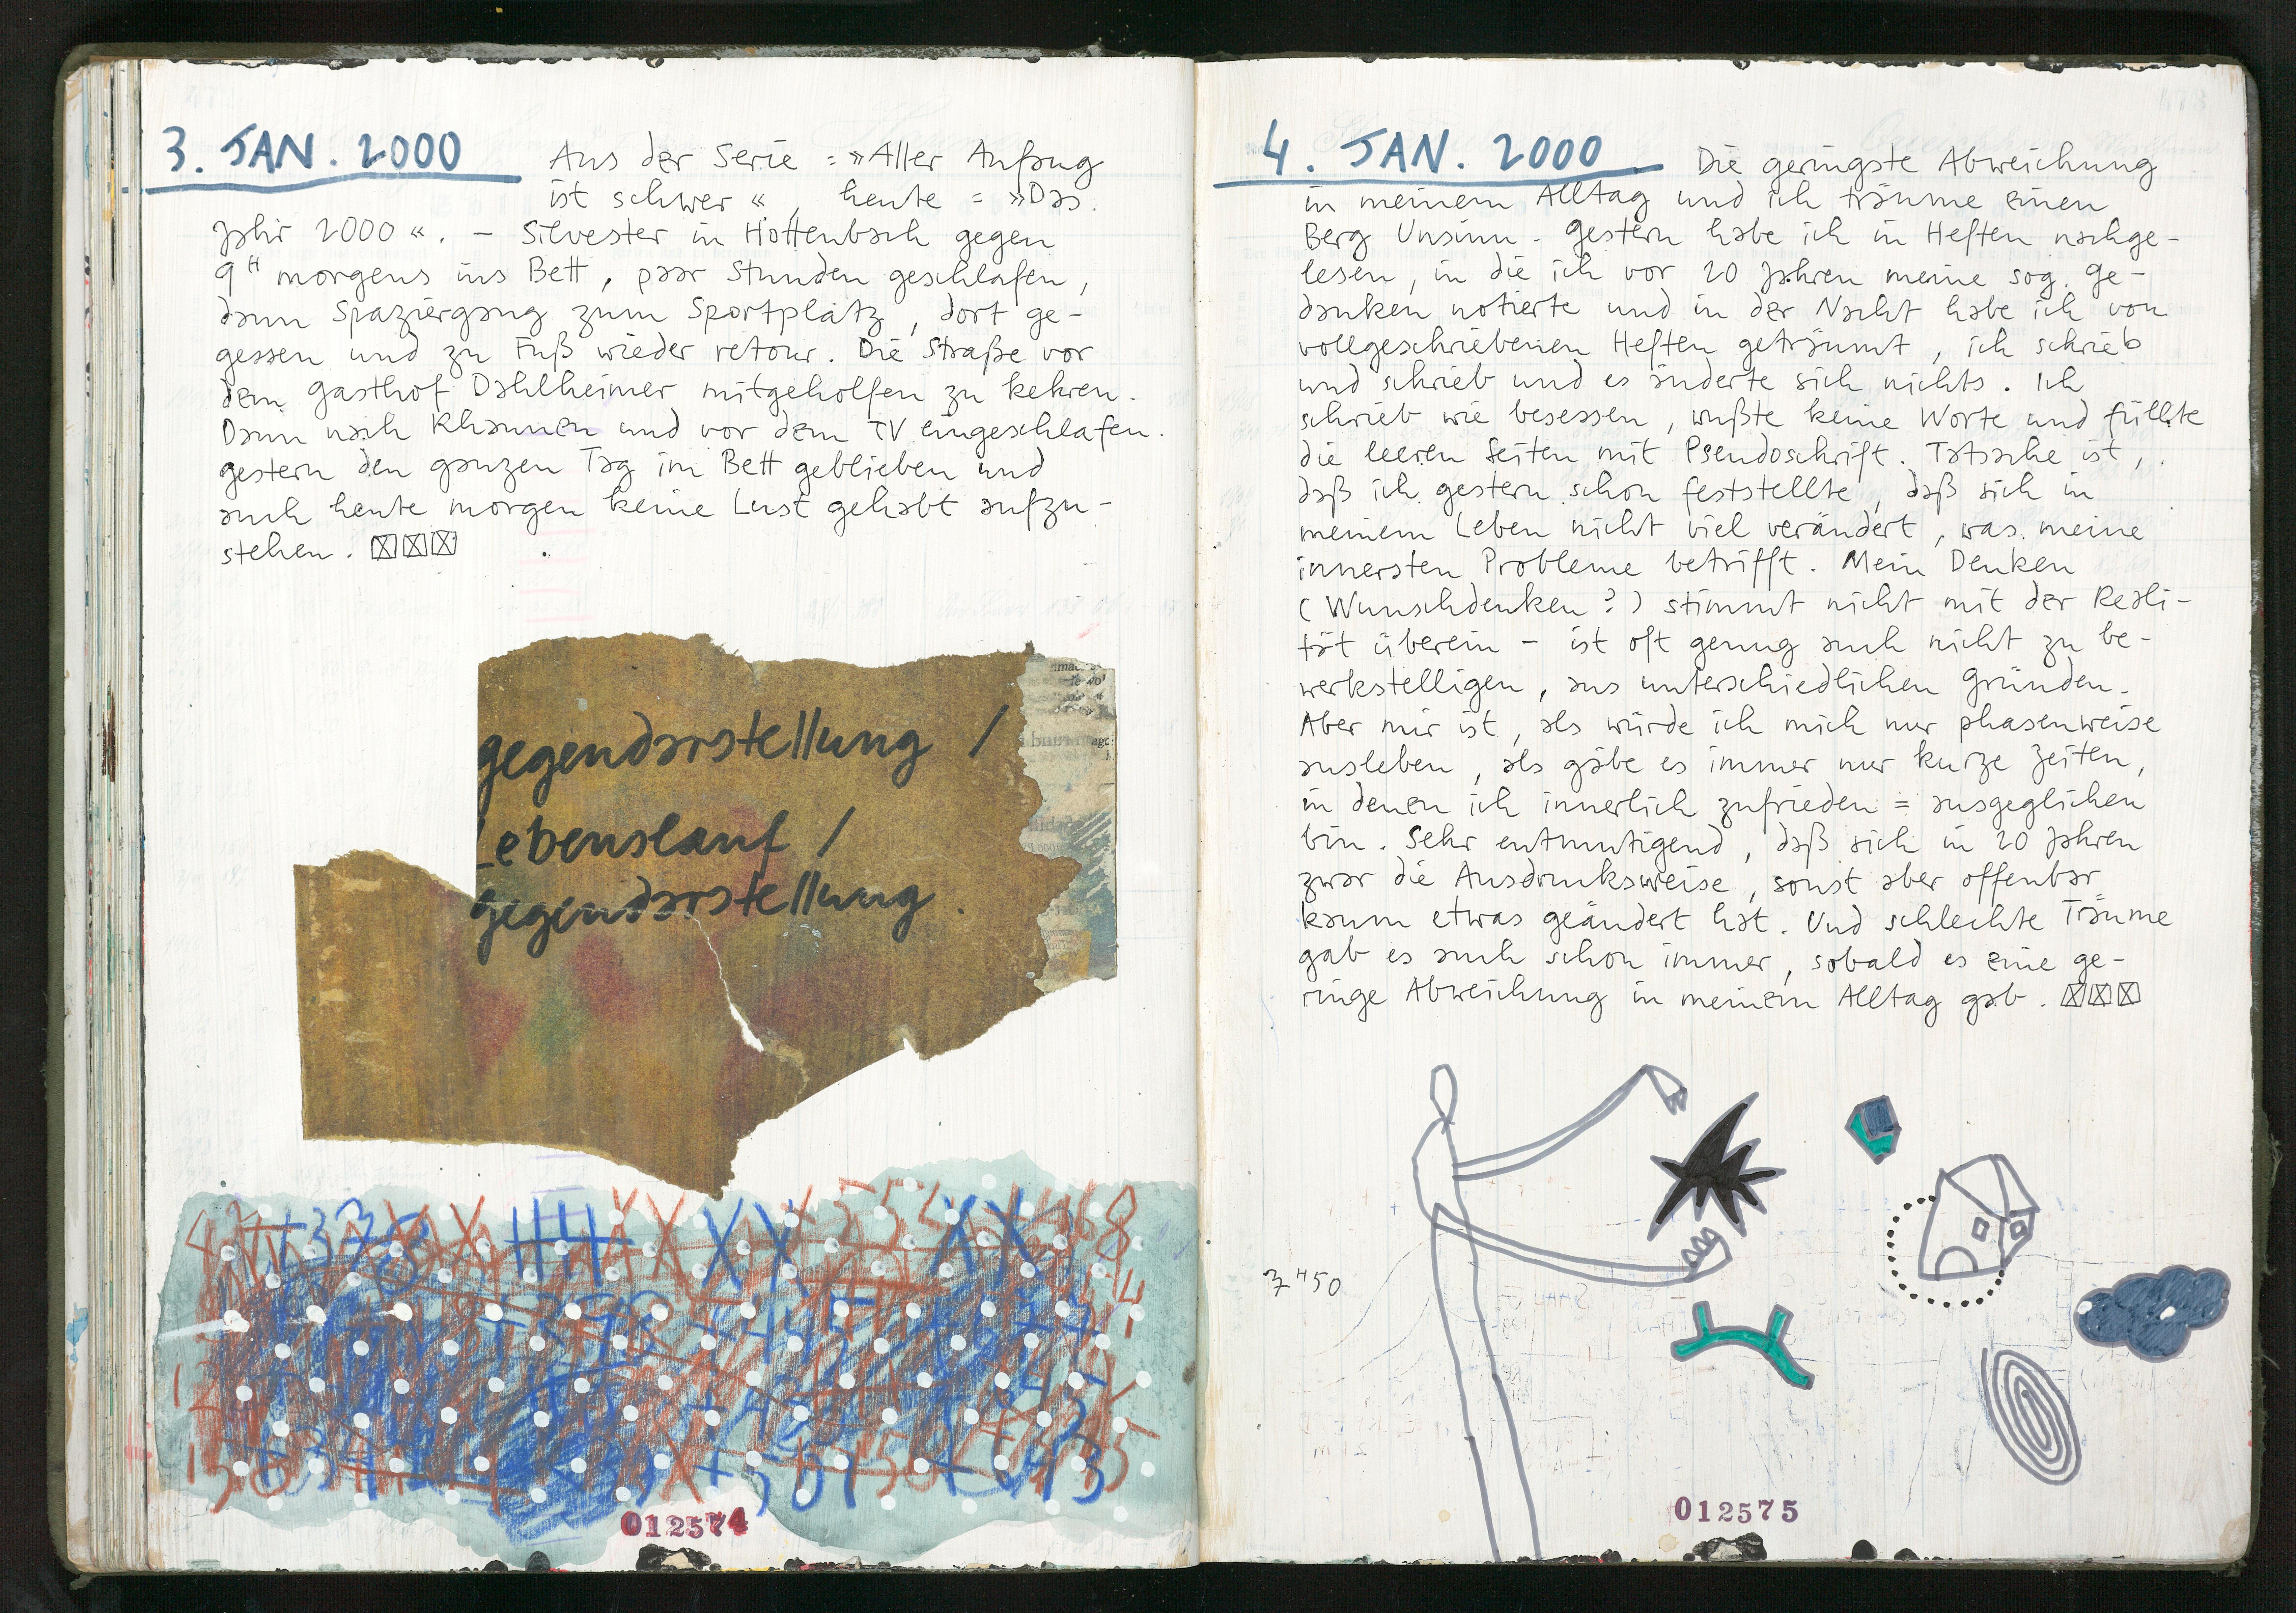 3. JAN. 2000
Aus der Serie : »Aller Anfang
ist schwer«, heute : »Das
Jahr 2000«. – Silvester in Hottenbach gegen
9ᴴ morgens ins Bett, paar Stunden geschlafen,
dann Spaziergang zum Sportplatz, dort ge-
gessen und zu Fuß wieder retour. Die Straße vor
dem Gasthof Dahlheimer mitgeholfen zu kehren.
Dann nach Rhaunen und vor dem TV eingeschlafen.
Gestern den ganzen Tag im Bett geblieben und
auch heute morgen keine Lust gehabt aufzu-
stehen. ☒☒☒
gegendarstellung /
Lebenslauf /
gegendarstellung.
012574
4. JAN. 2000
Die geringste Abweichung
in meinem Alltag und ich träume einen
Berg Unsinn. Gestern habe ich in Heften nachge-
lesen, in die ich vor 20 Jahren meine sog. Ge-
danken notierte und in der Nacht habe ich von
vollgeschriebenen Heften geträumt, ich schrieb
und schrieb und es änderte sich nichts. Ich
schrieb wie besessen, wußte keine Worte und füllte
die leeren Seiten mit Pseudoschrift. Tatsache ist,
daß ich gestern schon feststellte, daß sich in
meinem Leben nicht viel verändert, was meine
innersten Probleme betrifft. Mein Denken
(Wunschdenken?) stimmt nicht mit der Reali-
tät überein – ist oft genug auch nicht zu be-
werkstelligen, aus unterschiedlichen Gründen.
Aber mir ist, als würde ich mich nur phasenweise
ausleben, als gäbe es immer nur kurze Zeiten,
in denen ich innerlich zufrieden = ausgeglichen
bin. Sehr entmutigend, daß sich in 20 Jahren
zwar die Ausdrucksweise, sonst aber offenbar
kaum etwas geändert hat. Und schlechte Träume
gab es auch schon immer, sobald es eine ge-
ringe Abweichung in meinem Alltag gab. ☒☒☒
7ᴴ50
012575